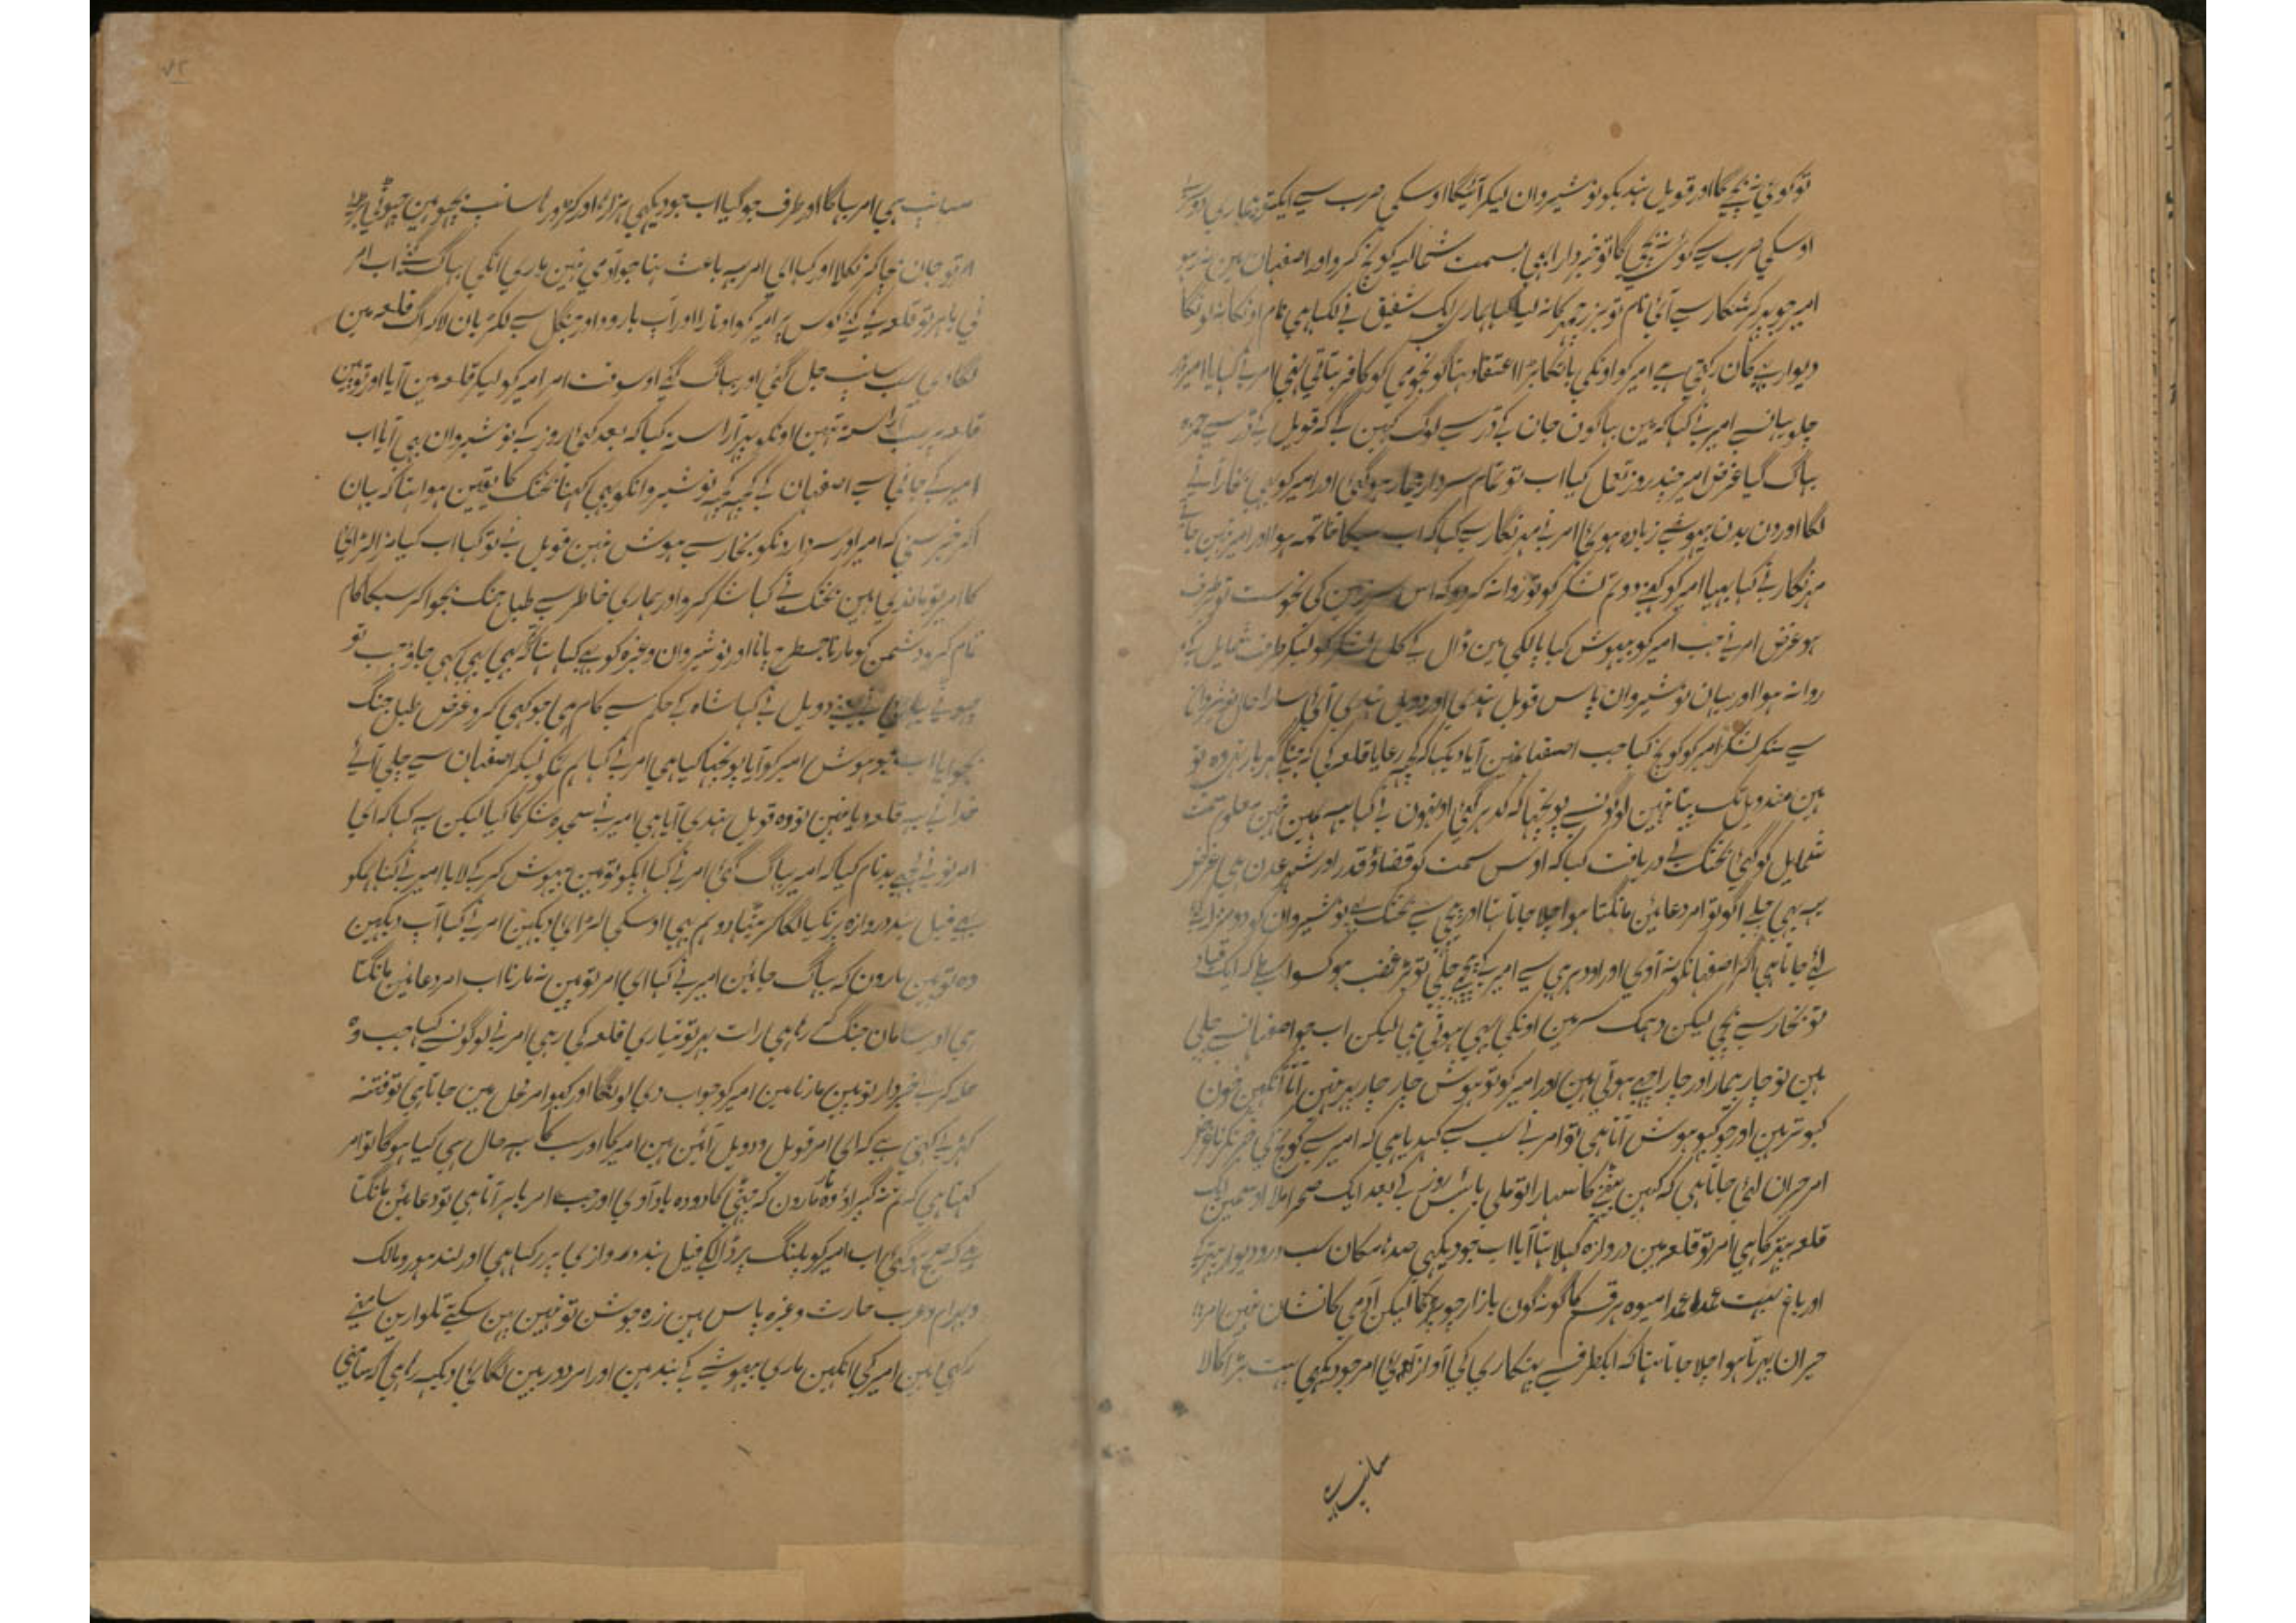 تو کوئی نہ بچیگا اور قویل ہندیکو نوشیروان لیکر آئیگا اوسکی ضرب سے
اوسکی ضرب سے کوئی نہ بچی گا تو خبردار ابھی بسمت شمالیہ کوچ کرو اور اصفہان مین نہ رہو
امیر جو پھر کر شکار سے آئی نام تو بزرجمہر کا نہ لیا کہا ہماری ایک شفیق نے لکہا ہی نام اونکا نہ لونگا
دیوار بھے کان رکہتی ہے امیر کو اونکی باتکا بڑا اعتقاد ہتا گو نجومی کو کافر بتاتی تھی امر نے کہا یا امیر
چلو یہانسے امیر نے کہا کہ مین بہاگون جان کے ڈر سے لوگ کہین گے کہ قویل کے ڈر سے حمزہ
بہاگ گیا غرض امیر چند روز تعلل کیا اب تو تمام سردار بیمار ہوگئی اور امیر کو بھی بخار آنے
لگا اور دن بدن بیہوشے زیادہ ہوئی امر نے مہرنگار سے کہا کہ اب سبکا خاتمہ ہوا اور امیر نہین جاتے
مہرنگار نے کہا بہیا امیر کو کہنے دو تم لشکر کو تو روانہ کردو کہ اس سرزمین کی نحوست تو برطرف
ہو غرض امر نے جب امیر کو بیہوش کیا پالکی مین ڈال کے کل لشکر کو لیکر طرف شمایل کے
روانہ ہوا اور یہان نوشیروان پاس قویل ہندی اور دویل ہندی آئی سارا حال
سے سنکر لشکر امیر کو کوچ کیا جب اصفہانمین آیا دیکہا کہ کچھ رعایا قلعہ کی
ہین مند ویل تک پتا نہین اونسے پوچہا کہ کدہر گئی اونہون نے کہا یہ ہمین نہین معلوم سمت
شمایل کو گئی بختک نے دریافت کیا کہ اوس سمت کو قضا و قدر اور شہر عدن ہی غرض
یہ بھی چلے اگو تو امر دعائین مانگتا ہوا چلا جاتا ہتا اور پیچی سے بختک بھے نوشیروان کو
لئے جاتا ہی اگر اصفہانکو نہ آوی اور اودہر ہی سے امیر کے پیچھے چلی تو بڑا غضب ہو کسواسطے کہ ایک قباد
تو بخار سے بچی لیکن دہمک سر مین اونکی بہی ہوتی ہی لیکن اب جو اصفہانسے چلی
ہین تو چار بیمار اور چار اچھے ہوتی ہین اور امیر کو تو ہوش چار چار پہر نہین آتا آنکہین خون
کبوتر ہین اور جو کبہو ہوش آتا ہی تو امر نے سب سے کہدیا ہی کہ امیر سے کوچ کی خبر نکرنا غرض
امر حیران لئی جاتا ہی کہ کہین بیٹہنے کا سہارا تو ملی بائیس روز کے بعد ایک صحرا ملا اوسمین ایک
قلعہ پتھر کا ہی امر تو قلعہ مین دروازہ کہلا ہتا آیا اب جو دیکہی صدہا مکان سب در و دیوار پتہر کے
اور باغ بہت عمدا عمدا میوہ ہر قسم کا گونہ گون بازار چوپڑ کا لیکن آدمی کا نشان نہین امر
حیران پہرتا ہوا چلا جاتا ہتا کہ ایکطرف سے پہنکاری کی آواز آئی امر جو دیکہی بہت بڑا کالا
سانپ ہی
سانپ ہی امر بہاگا اور طرف جو گیا اب جو دیکہی ہزارہا اور کڑورہا سانپ بچہو ہین چہوٹی بڑی
امر تو جان بچا کر نکلا اور کہا ای امر یہ باعث ہتا جو آدمی نہین ماری انکی بہاگ گئے اب امر
نی باہر تو قلعہ کے کئے کوس پر امیر کو اوتارا اور آپ بارود اور جنگل سے لکڑیان لاکر آگ قلعہ مین
لگادی سب سانپ جل گئی اور بہاگ گئے اوسوقت امر امیر کو لیکر قلعہ مین آیا اور توپین
قلعہ پر سب آراستہ تہین اونکو پہر آراستہ کیا کہ بعد کئی روز کے نوشیروان بھی آیا اب
امیر کے جانی سے اصفہان کے کچھ کچھ نوشیروانکو بھی کہنا بختک کا یقین ہوا ہتا کہ یہان
آکر خبر سنی کہ امیر اور سردارونکو بخار سے ہوش نہین قویل نے تو کہا اب کیا نہ لڑائی
کا امر تو باندی ہین بختک نے کہا شکر کرو اور ہماری خاطر سے طبل جنگ بجواکر سبکا کام
تمام کرو دشمن کو مارنا جسطرح پانا اور نوشیروان وغیرہ کو بھے کہا ہتا کہ ہی بہی کہی جاؤ جب تو
دویل نے کہا شاہ کے حکم سے کام ہی جو کہی کرو غرض طبل جنگ
بجوایا اب جو ہوش امیر کو آیا پوچہا کیا ہی امر نے کہا ہم تمکو لیکر اصفہان سے چلی آئے
خدا نے یہ قلعہ دیا نہین تو وہ قویل ہندی آیا ہی امیر نے سجدہ شکر کا کیا لیکن یہ کہا کہ ای
امر تونے مجھے بدنام کیا کہ امیر بہاگ گئی امر نے کہا آپکو تو مین بیہوش کر کے لایا امیر نے کہا ہمکو
بھے فیل بند دروازہ پر تکیا لگاکر بیٹہا دو ہم بھی اوسکی لڑائی دیکہین امر نے کہا آپ دیکہین
وہ توپین مارون کہ بہاگ جائین امیر نے کہا ای امر توپین نہ مارنا اب امر دعائین مانگتا
ہی اور سامان جنگ کے رہا ہی رات بہر تو تیاری قلعہ کی رہی امر نے لوگونسے کہا جب وہ
حملہ کرے خبردار توپین مارنا مین امیر کو جواب دی لونگا اور کبہو امر محل مین جاتا ہی تو فتنہ
کہڑے کہتی ہے کہ ای امر قویل و دویل آئین ہین امیر کا اور سب کا یہ حال ہی کیا ہوگا تو امر
کہتا ہی کہ تم نہ گہبراؤ وہ مارون کہ چہٹی کا دودہ یاد آوی اور جب امر باہر آتا ہی تو دعائین مانگتا
ہے کہ صبح ہوگئی اب امیر کو پلنگ پر ڈالکے فیل بند دروازی پر رکہا ہی اور لندہور و مالک
و بہرام و عرب حارث وغیرہ پاس ہین زرہ جوش تو نہین پہن سکتے تلوارین سامنے
رکہی ہین امیر کی انکہین ماری بیہوشے کے بند ہین اور امر دوربین لگائی دیکہ رہا ہی کہ سامنی